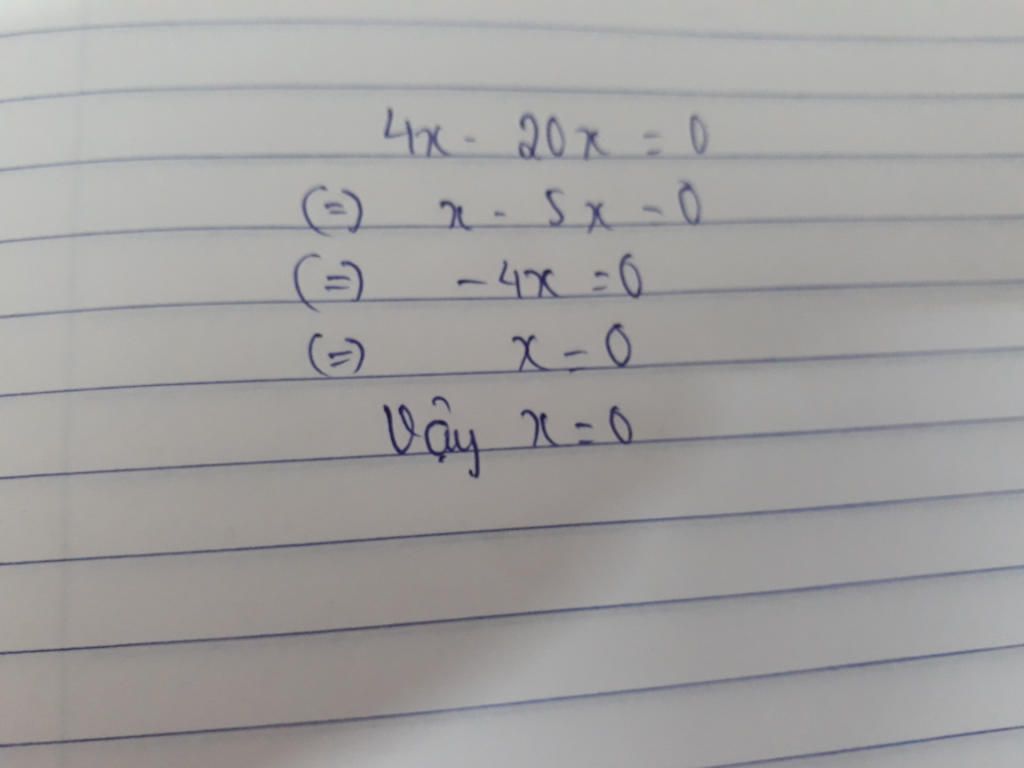 4x - 20x = 0
(=) x - 5x = 0
(=) -4x = 0
(=) x = 0
Vậy x = 0